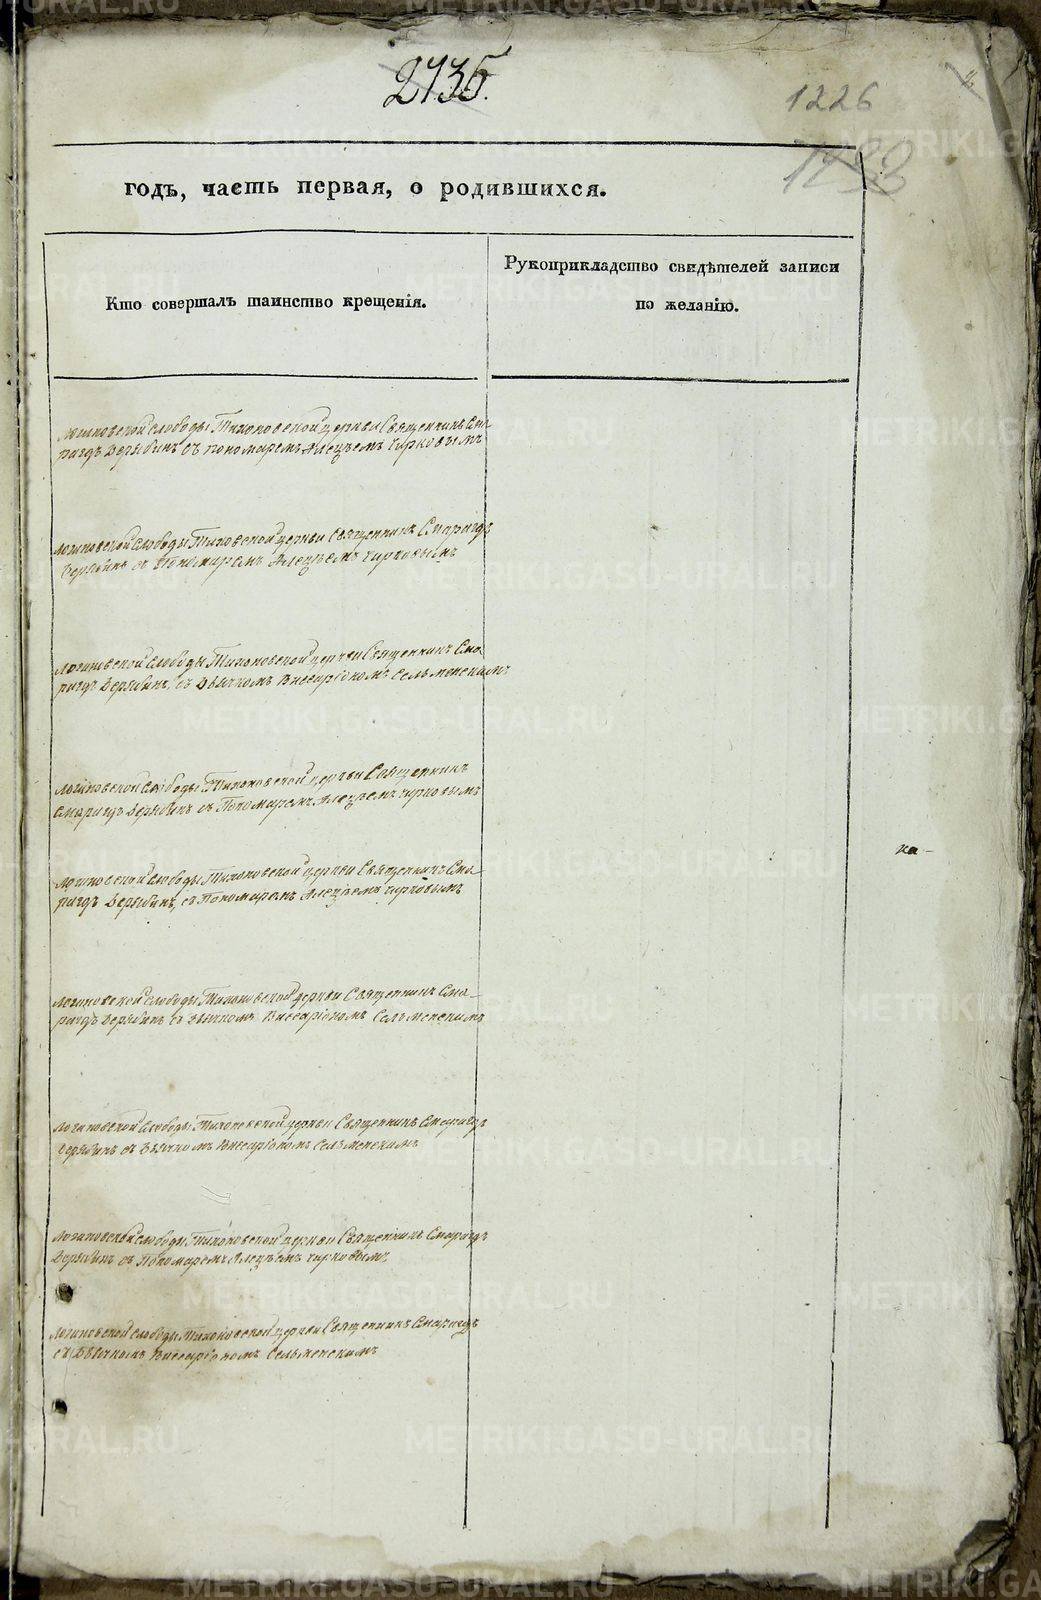 2735.
1226
1233
годъ, часть первая, о родившихся.
Рукоприкладство свидѣтелей записи
Кто совершалъ таинство крещенія.
по желанію.
Логиновской слободы Тихоновской церкви Священникъ Сма-
рагдъ Дерябинъ съ пономаремъ Алецѣемъ Чирковымъ
Логиновской слободы Тихоновской церкви Священникъ Смарагдъ
Дерябинъ съ Пономаремъ Алецѣемъ Чирковымъ
Логиновской слободы Тихоновской церкви Священникъ Сма-
рагдъ Дерябинъ, съ Дьячкомъ Виссаріономъ Сельменскимъ
Логиновской слободы Тихоновской церкви Священникъ
Смарагдъ Дерябинъ съ Пономаремъ Алецѣемъ Чирковымъ
на-
Логиновской слободы Тихоновской церкви Священникъ Сма-
рагдъ Дерябинъ, съ Пономаремъ Алецѣемъ Чирковымъ
Логиновской слободы Тихоновской церкви Священникъ Сма-
рагдъ Дерябинъ съ Дьячкомъ Виссаріономъ Сельменскимъ
Логиновской слободы Тихоновской церкви Священникъ Смарагдъ
Дерябинъ съ Дьячкомъ Виссаріономъ Сельменскимъ
Логиновской слободы Тихоновской церкви Священникъ Смарагдъ
Дерябинъ съ Пономаремъ Алецѣемъ Чирковымъ
Логиновской слободы Тихоновской церкви Священникъ Смарагдъ
съ Дьячкомъ Виссаріономъ Сельменскимъ
METRIKI.GASO-URAL.RU